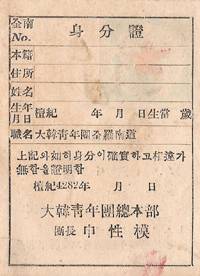 全南
No.
身分證
本籍
住所
姓名
生年月日 檀紀 年 月 日生當 歲
職名 大韓靑年團全羅南道
上記와如히身分이確實하고相違가
無함을證明함
檀紀4282年 月 日
大韓靑年團總本部
團長 申性模